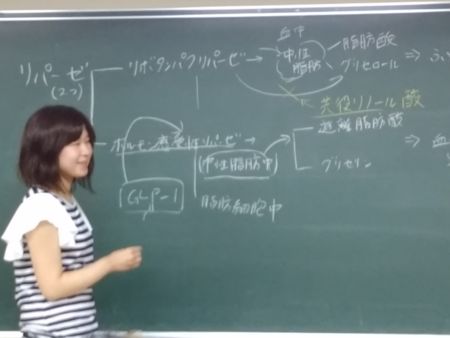 血中
リパーゼ
(2つ)
リポタンパクリパーゼ
中性
脂肪
脂肪酸
グリセロール
⇒
共役リノール酸
ホルモン感受性リパーゼ
(中性脂肪中)
遊離脂肪酸
グリセリン
⇒ 血
GLP-1
脂肪細胞中